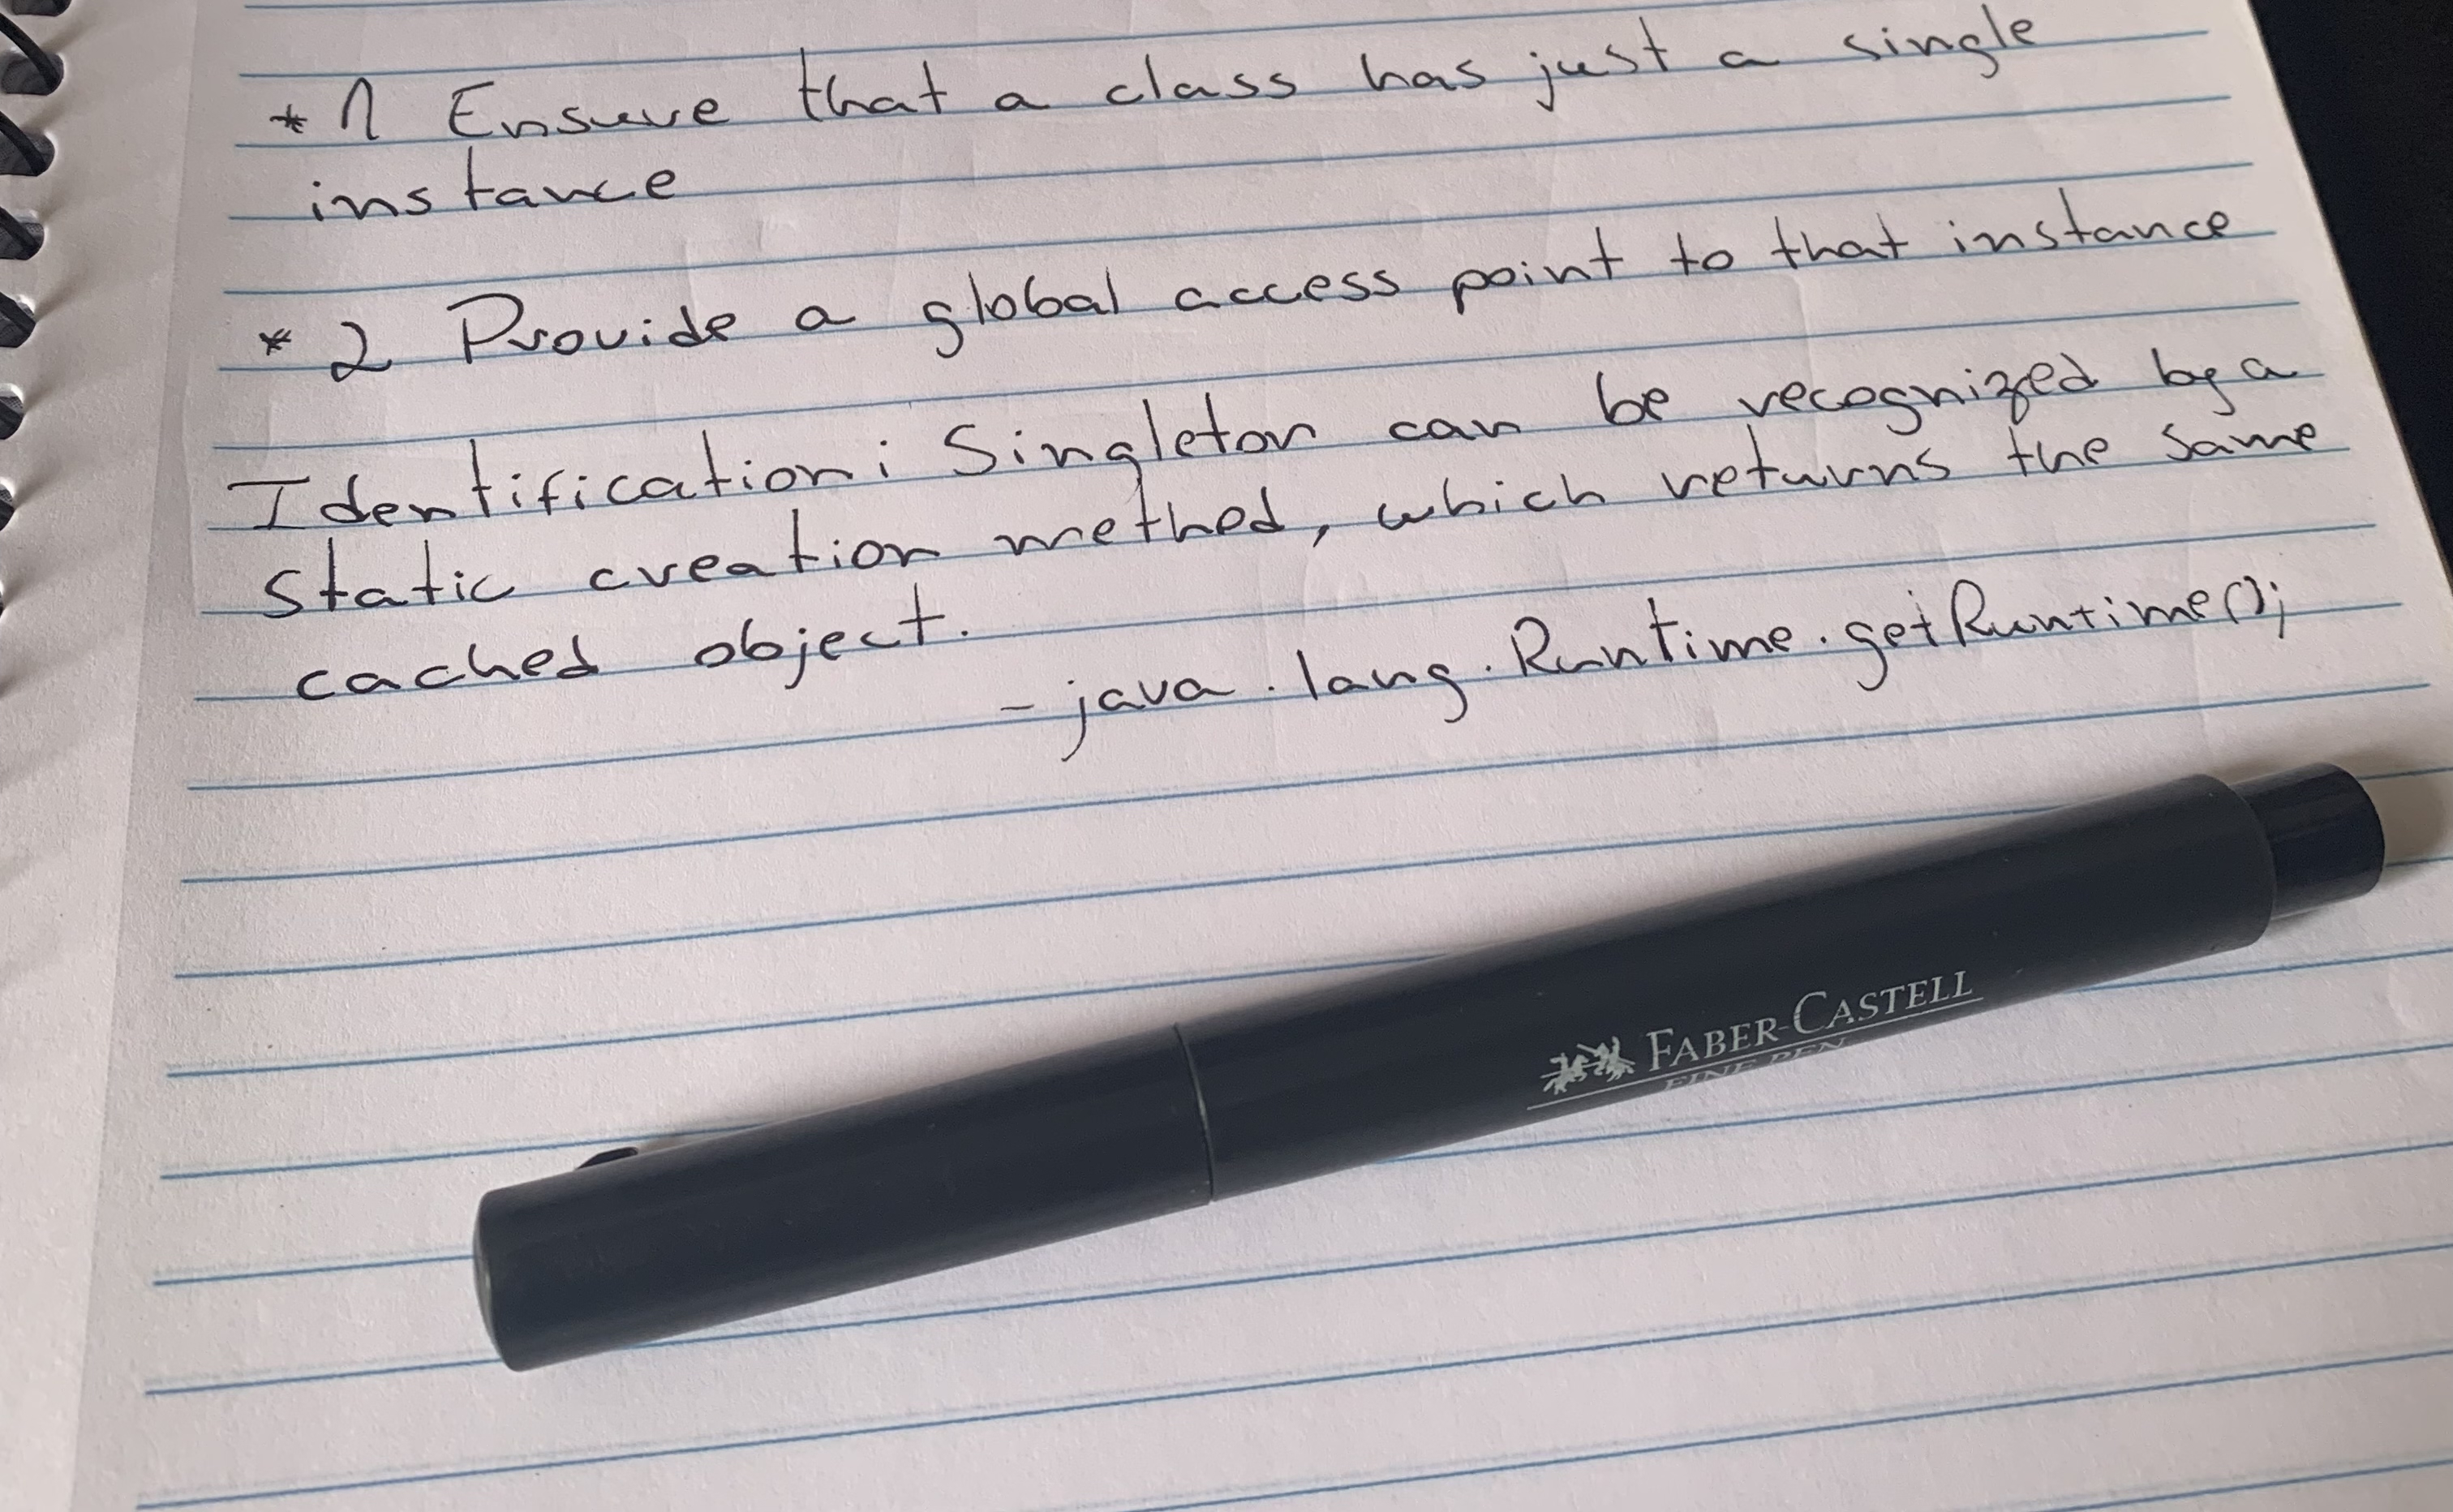 * 1 Ensure that a class has just a single
instance
* 2 Provide a global access point to that instance
Identification: Singleton can be recognized by a
static creation method, which returns the same
cached object.
- java.lang.Runtime.getRuntime();
FABER-CASTELL
FINE PEN